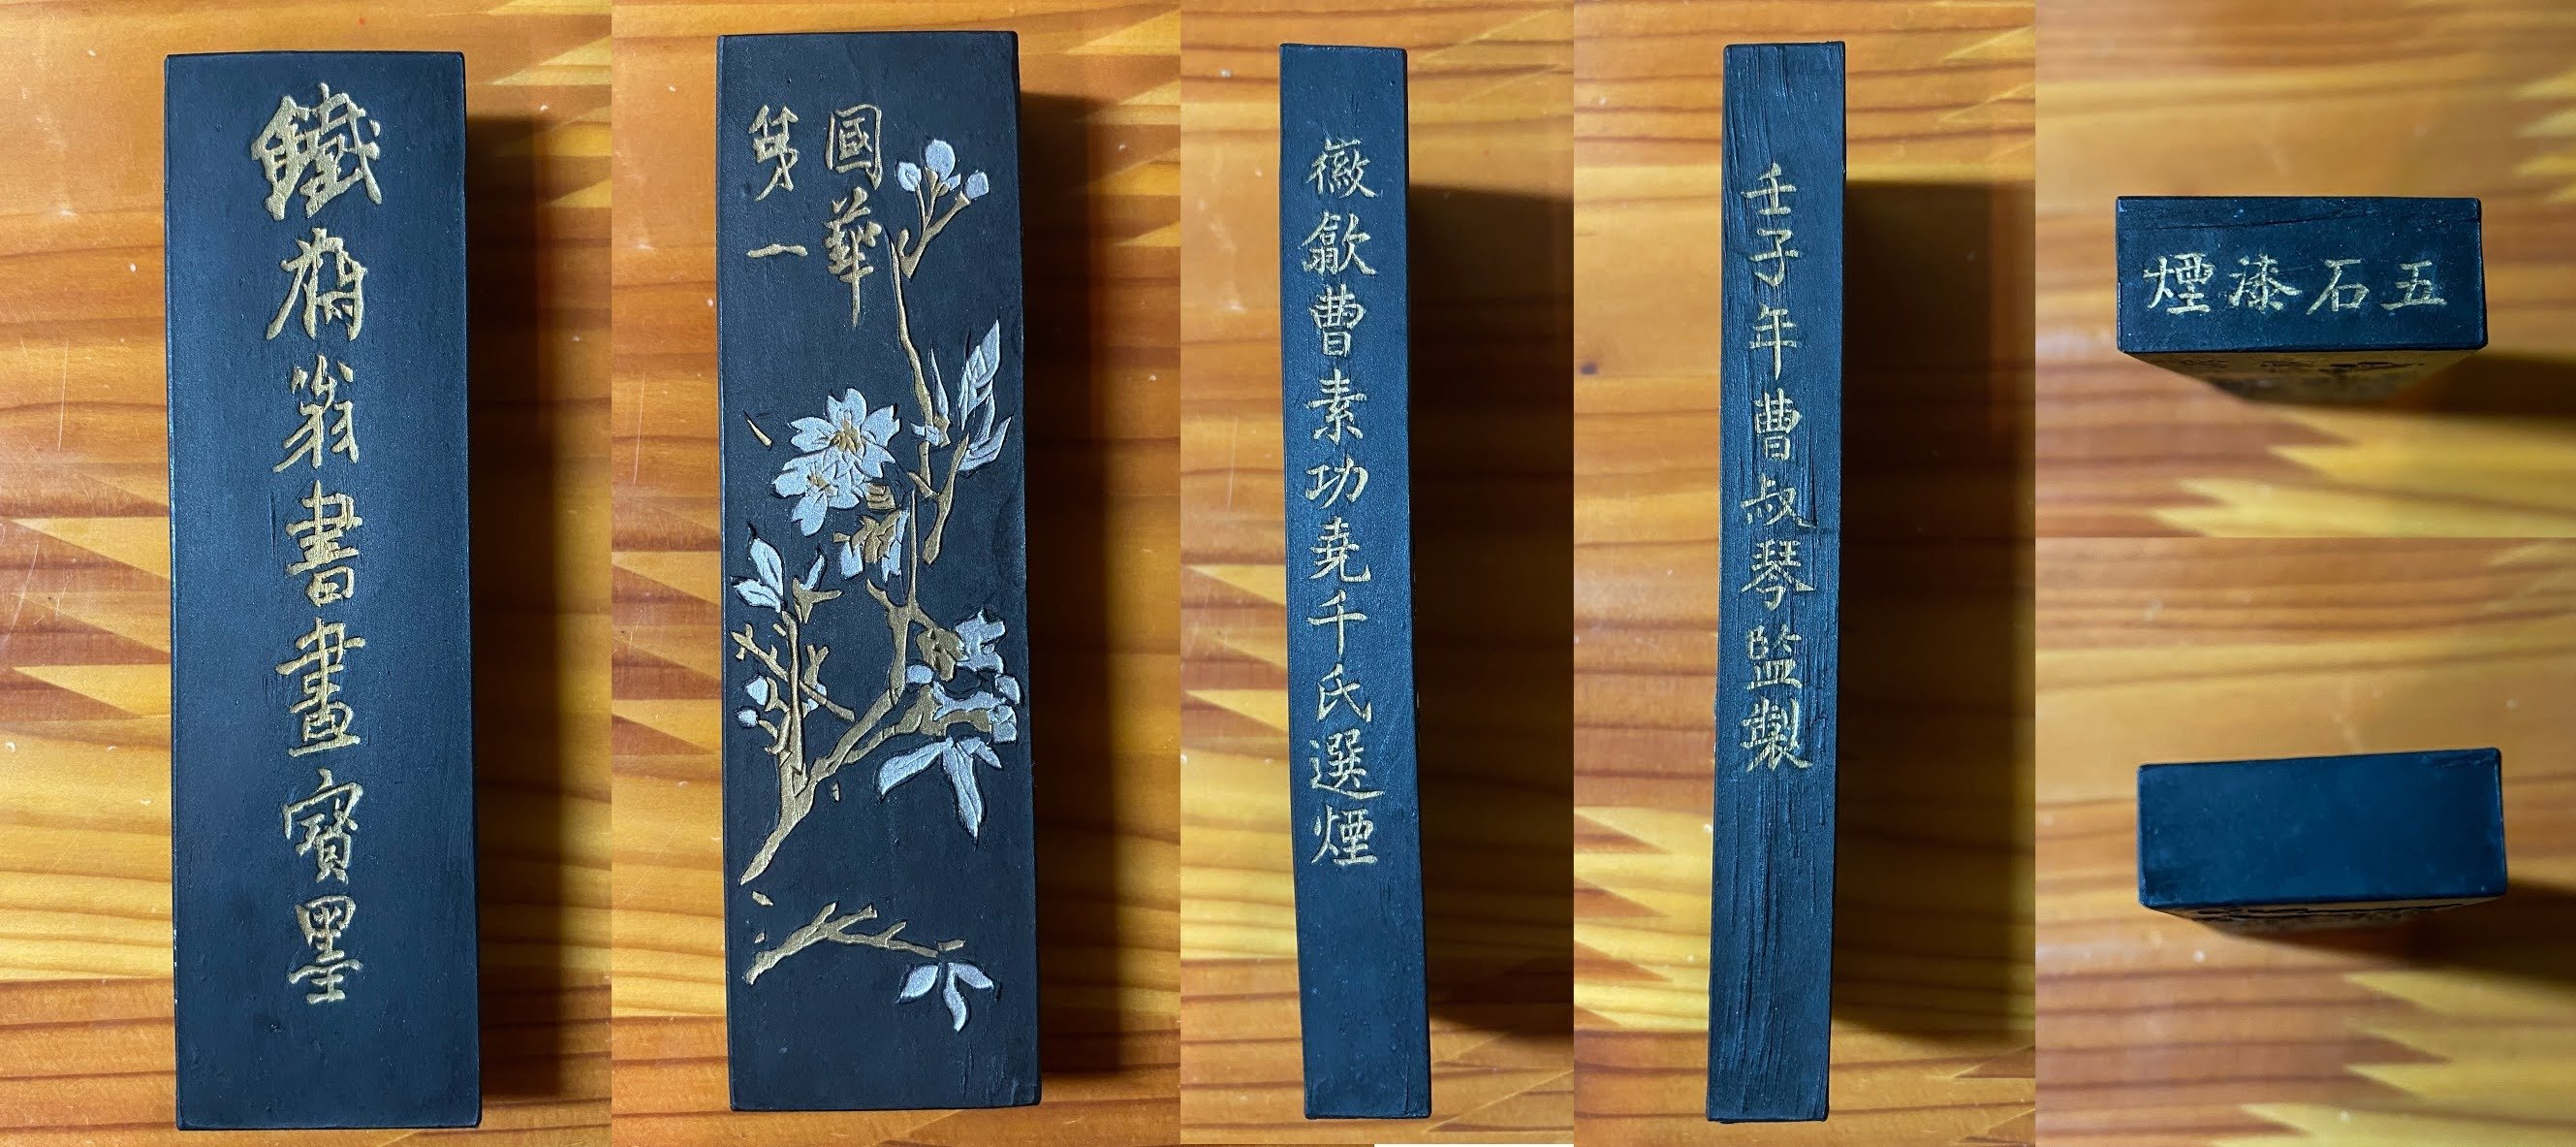 鐵齋翁書畫寶墨
國華
第一
徽歙曹素功堯千氏選煙
壬子年曹叔琴監製
五石漆煙